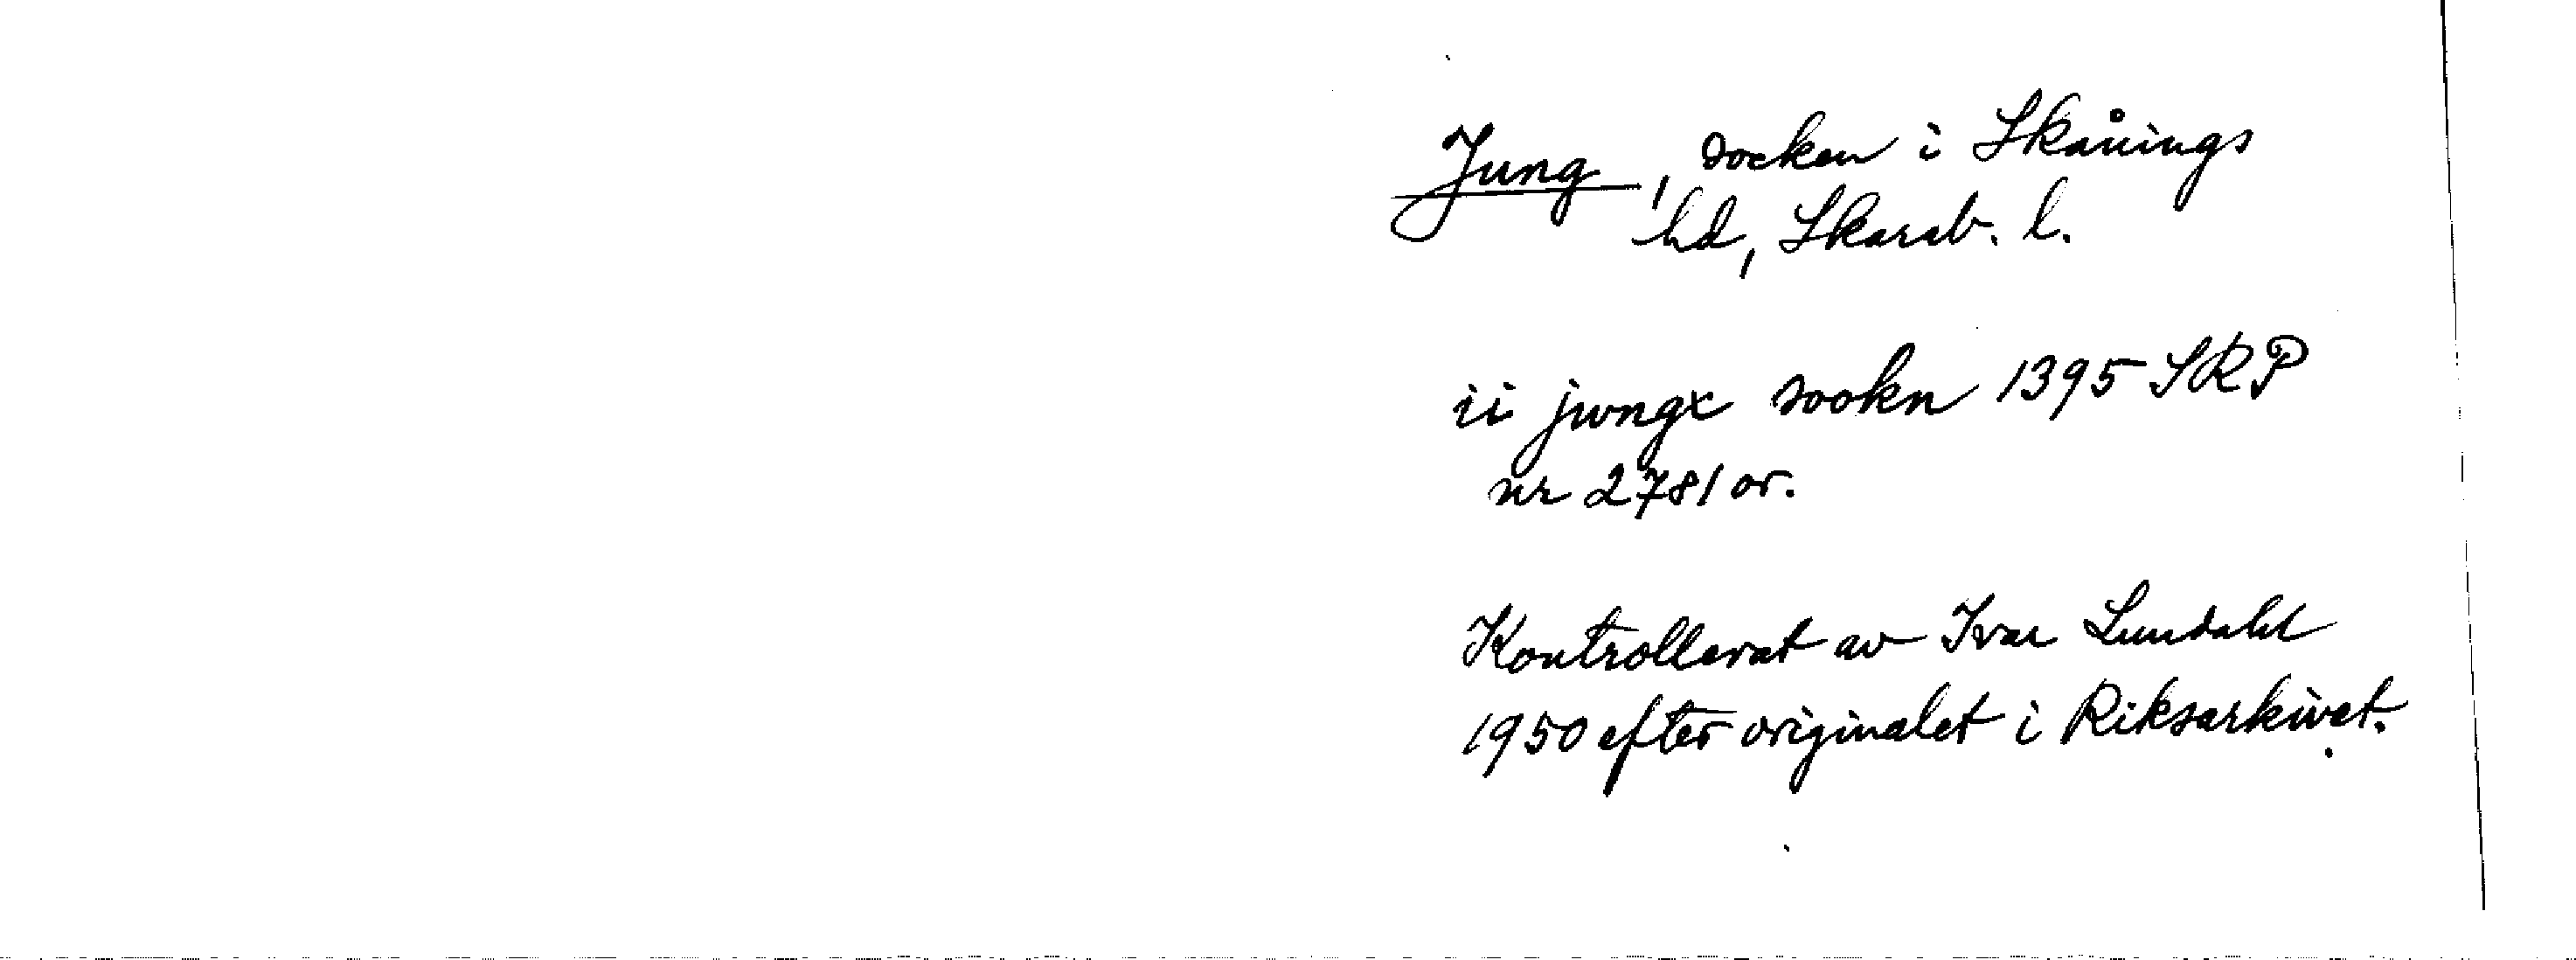 Jung, socken i Skånings
hd, Skarab. l.
ii jwngx sookn 1395 SRP
nr 2781 or.
Kontrollerat av Ivar Lundahl
1950 efter originalet i Riksarkivet.